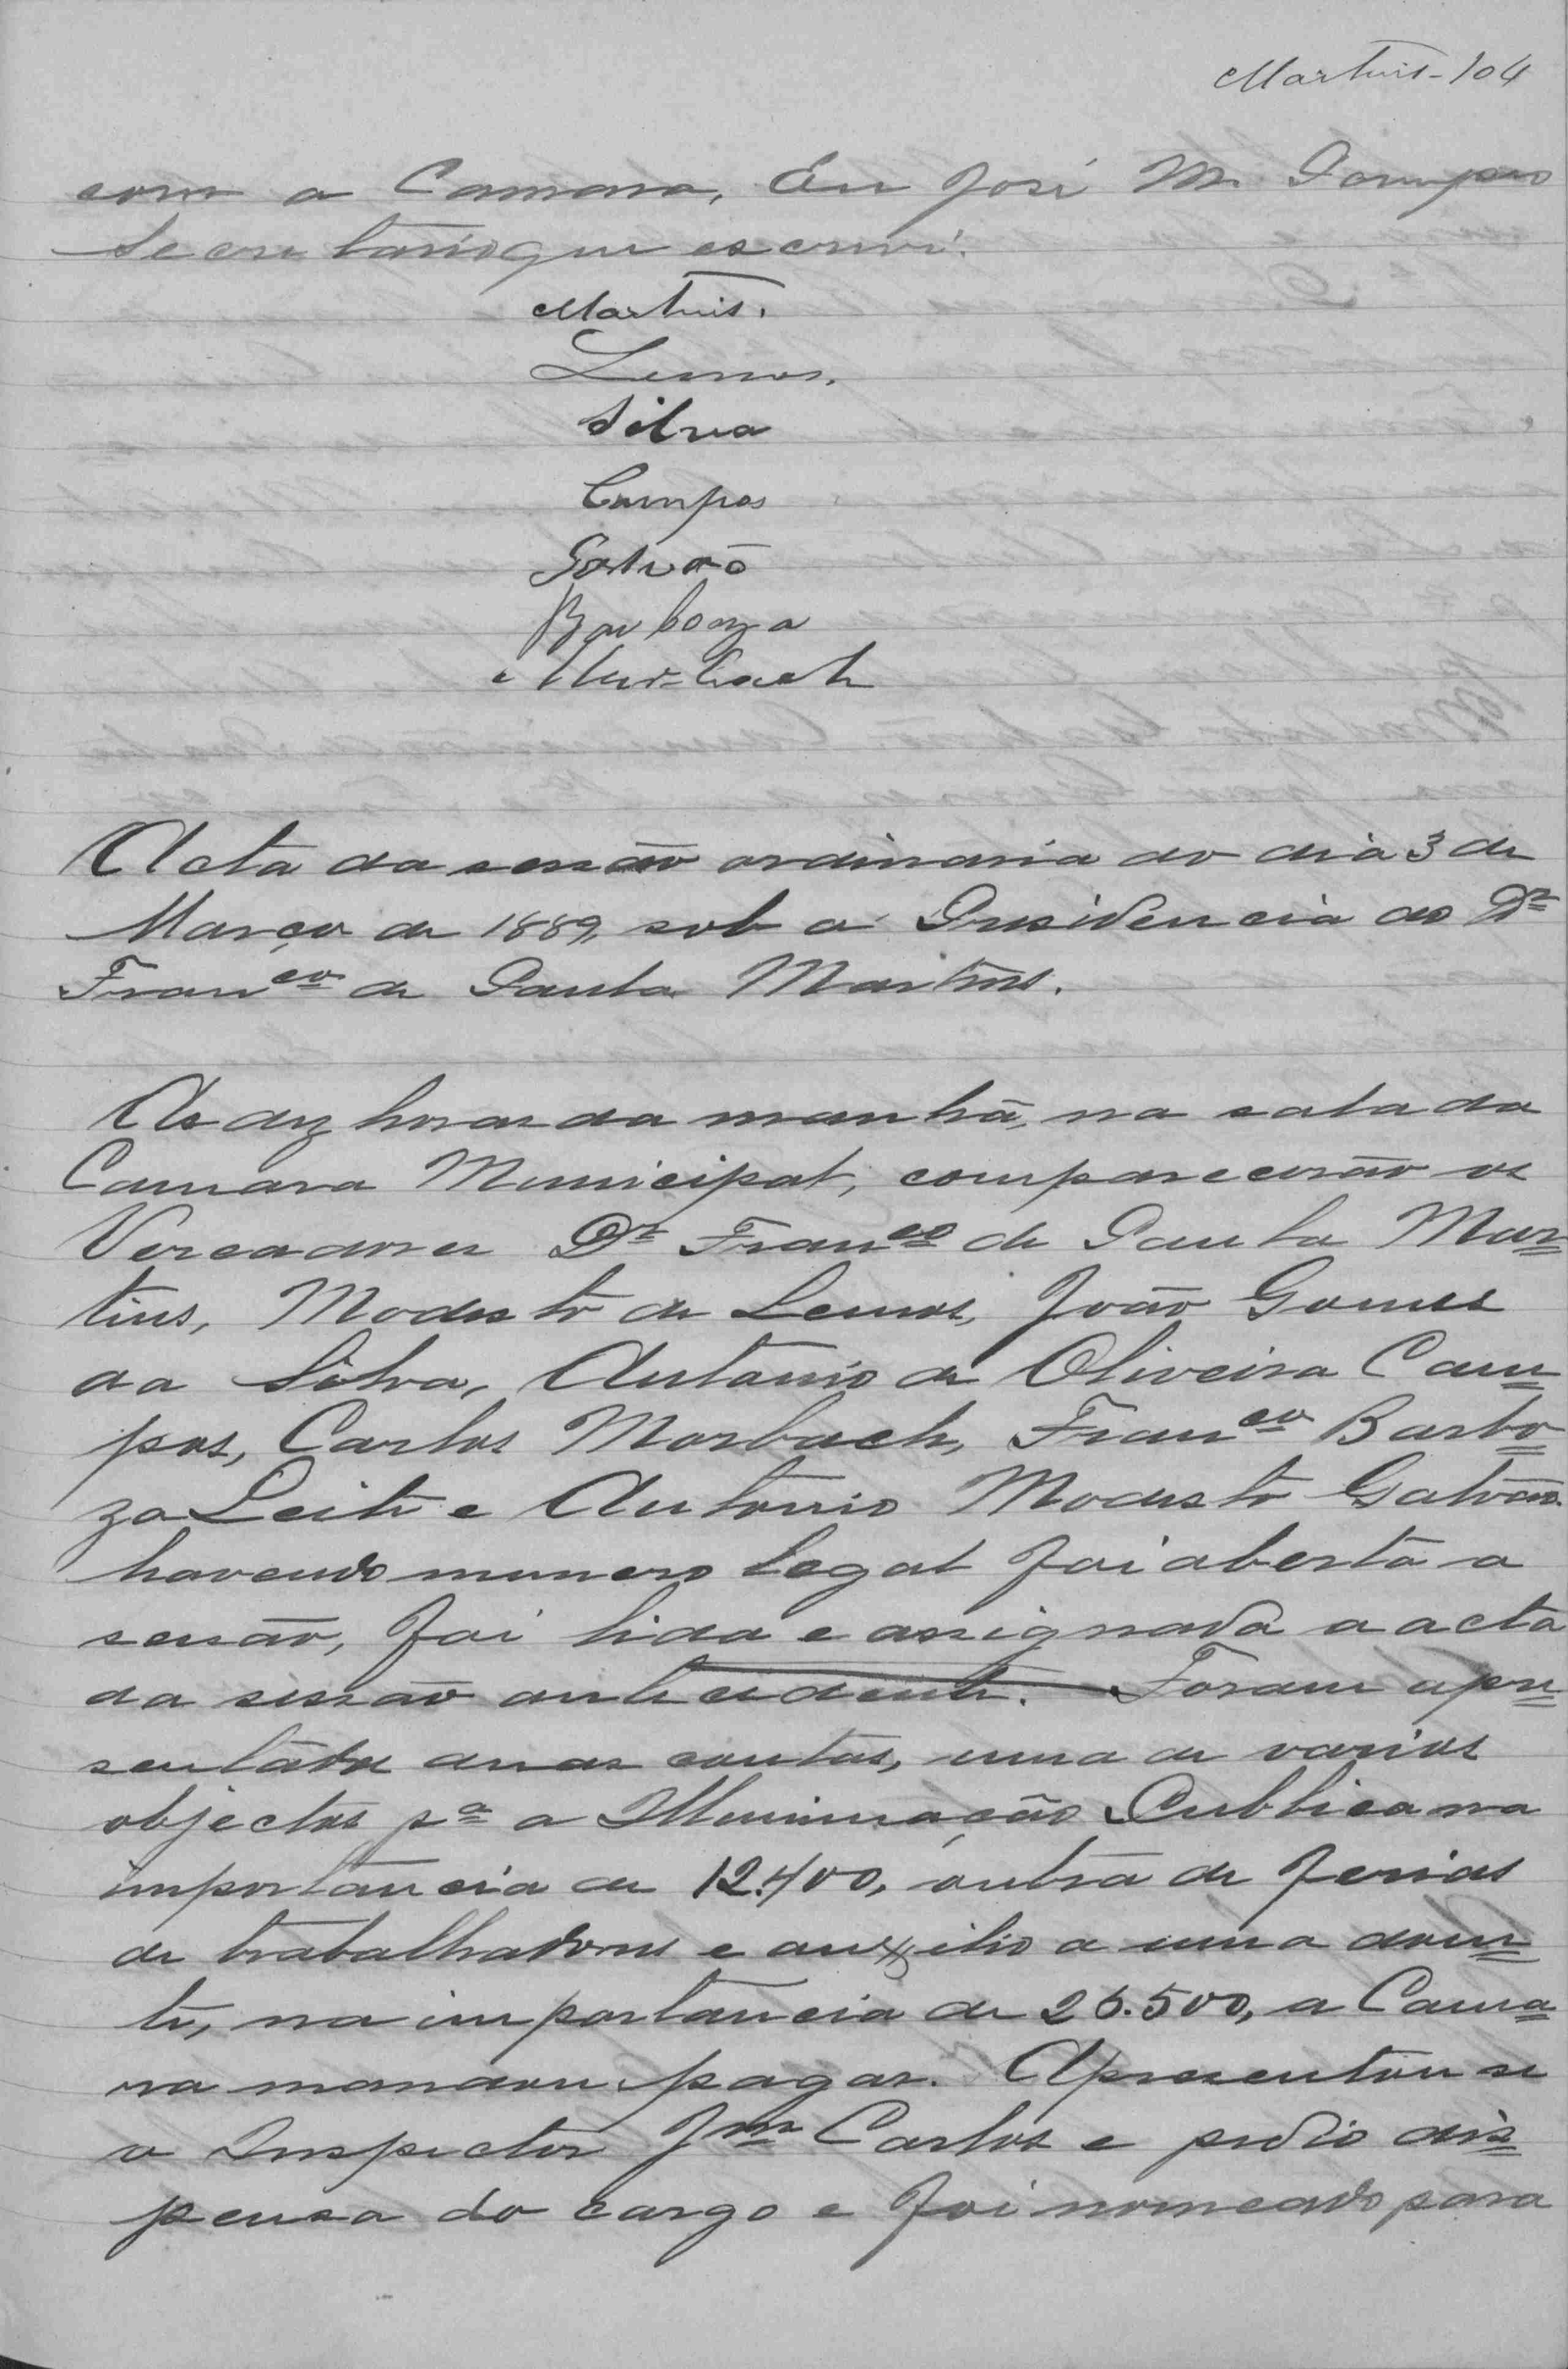 Martins - 104
com a Camara, Eu José M. Pompeo
Secretario que escrevi.
Martins.
Lemos.
Silva
Campos
Galvão
Barboza
Morbach
Acta da sessão ordinaria do dia 3 de
Março de 1889, sob a Presidencia do Dr
Franco de Paula Martins.
As dez horas da manhã, na sala da
Camara Municipal, comparecerão os
Vereadores Dr Franco de Paula Mar=
tins, Modesto de Lemos, João Gomes
da Silva, Antonio de Oliveira Cam=
pos, Carlos Morbach, Franco Barbo=
za Leite e Antonio Modesto Galvão.
havendo numero legal foi aberta a
sessão, foi lida e assignada a acta
da sessão antecedente. — Foram apre=
sentadas duas contas, uma de varios
objectos pa a Illuminação Publica na
importancia de 12.400, outra de ferias
de trabalhadores e auxilio a uma doen=
te, na importancia de 26.500, a Cama=
ra mandou pagar. Apresentou se
o Inspector Jm Carlos e pedio dis=
pensa do cargo e foi nomeado para